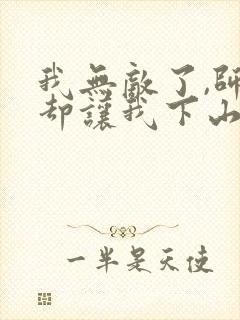 我無敵了,師
却讓我下山
一半是天使